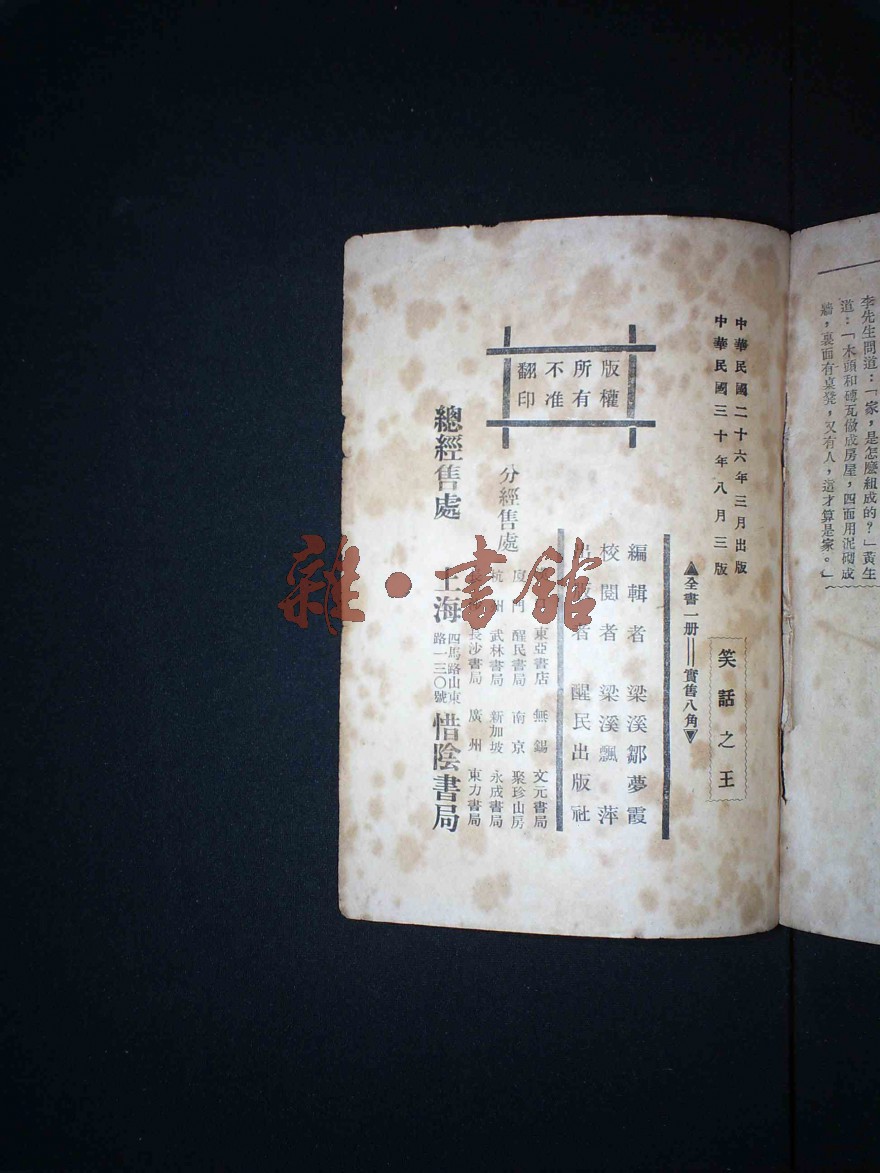 李先生問道:「家,是怎麼組成的?」黃生
道:「木頭和磚瓦做成房屋,四面用泥砌成
牆,裏面有桌凳,又有人,這才算是家。」
中華民國二十六年三月出版
中華民國三十年八月三版
笑話之王
▲全書一册══實售八角▼
版權所有不准翻印
編輯者 梁溪鄒夢霞
校閱者 梁溪飄萍
出版者 醒民出版社
分經售處
東亞書店 無錫 文元書局
廈門 醒民書局 南京 聚珍山房
杭州 武林書局 新加坡 永成書局
長沙書局 廣州 東力書局
總經售處 上海四馬路山東路一三〇號 惜陰書局
雜·書館